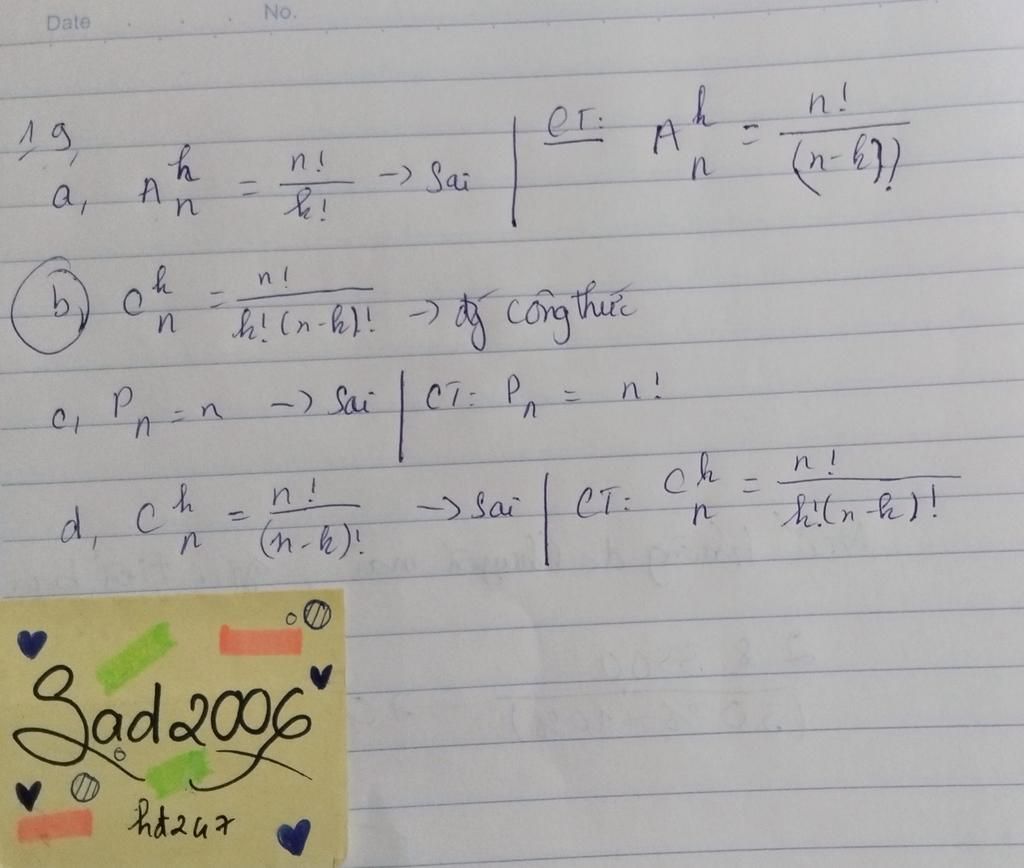 Date No.
19,
a, A^k_n = n!/k! -> Sai | CT: A^k_n = n!/(n-k)!
b, C^k_n = n!/k!(n-k)! -> đg công thức
c, P_n = n -> Sai | CT: P_n = n!
d, C^k_n = n!/(n-k)! -> Sai | CT: C^k_n = n!/k!(n-k)!
Sad2006
hd247